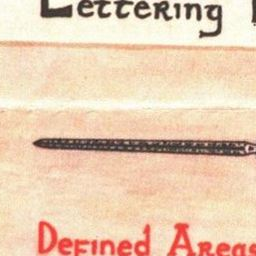 Lettering
Defined Areas